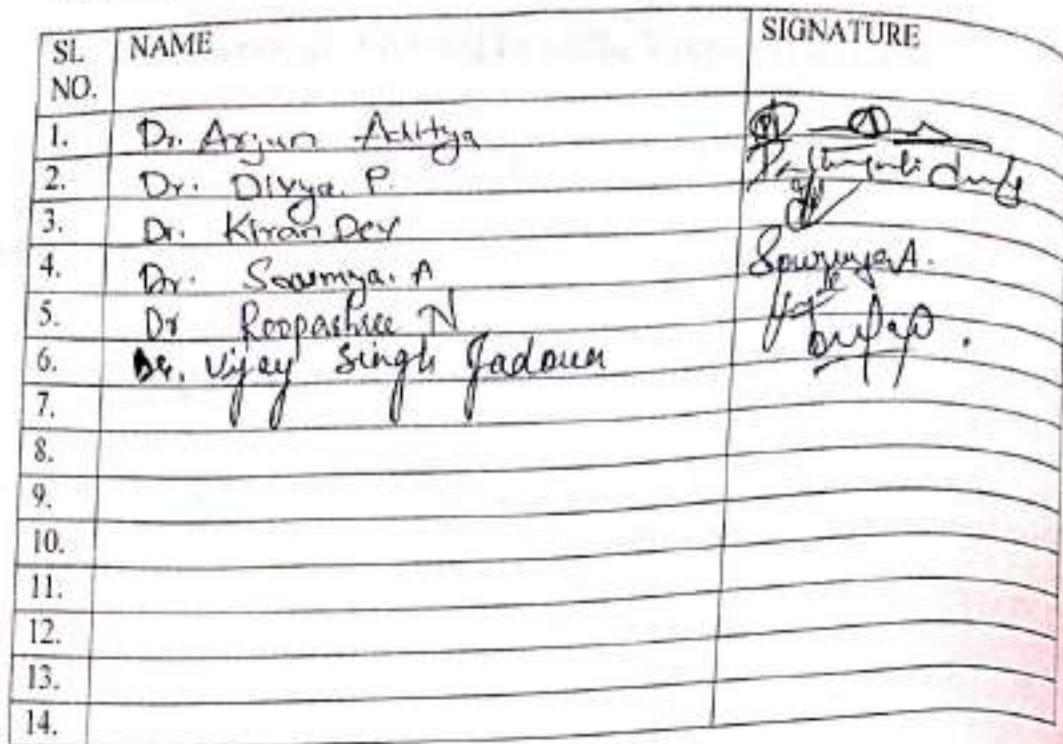 SL NO. NAME SIGNATURE
1. Dr. Arjun Adhitya
2. Dr. Divya. P.
3. Dr. Kiran Dev
4. Dr. Soumya. A Soumya A.
5. Dr Roopashree N
6. Dr. Vijay Singh Jadoun
7.
8.
9.
10.
11.
12.
13.
14.